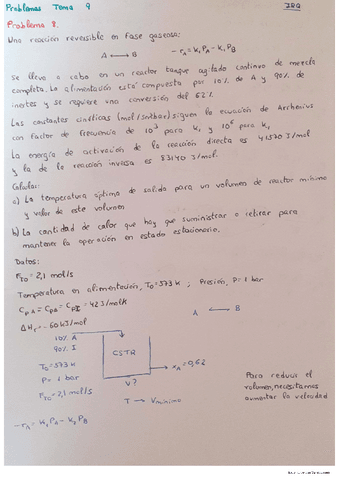 Problemas Tema 9
IRQ
Problema 8.
Una reacción reversible en fase gaseosa:
A ⟷ B     -rA = k1 PA - k2 PB
se lleva a cabo en un reactor tanque agitado continuo de mezcla
completa. La alimentación está compuesta por 10% de A y 90% de
inertes y se requiere una conversión del 62%
Las constantes cinéticas (mol/s·m3·bar) siguen la ecuación de Arrhenius
con factor de frecuencia de 10³ para k1 y 10⁶ para k2
La energía de activación de la reacción directa es 41570 J/mol
y la de la reacción inversa es 83140 J/mol.
Calcular:
a) La temperatura óptima de salida para un volumen de reactor mínimo
y valor de este volumen
b) La cantidad de calor que hay que suministrar o retirar para
mantener la operación en estado estacionario.
Datos:
FT0 = 2,1 mol/s
Temperatura en alimentación, T0 = 373 K ; Presión, P = 1 bar
CpA = CpB = CpI = 42 J/molK
A ⟷ B
ΔHr = -60 kJ/mol
10% A
90% I
T0 = 373K
P = 1 bar
FT0 = 2,1 mol/s
CSTR
V?
xA = 0,62
T → Vmínimo
Para reducir el
volumen, necesitamos
aumentar la velocidad
-rA = k1 PA - k2 PB